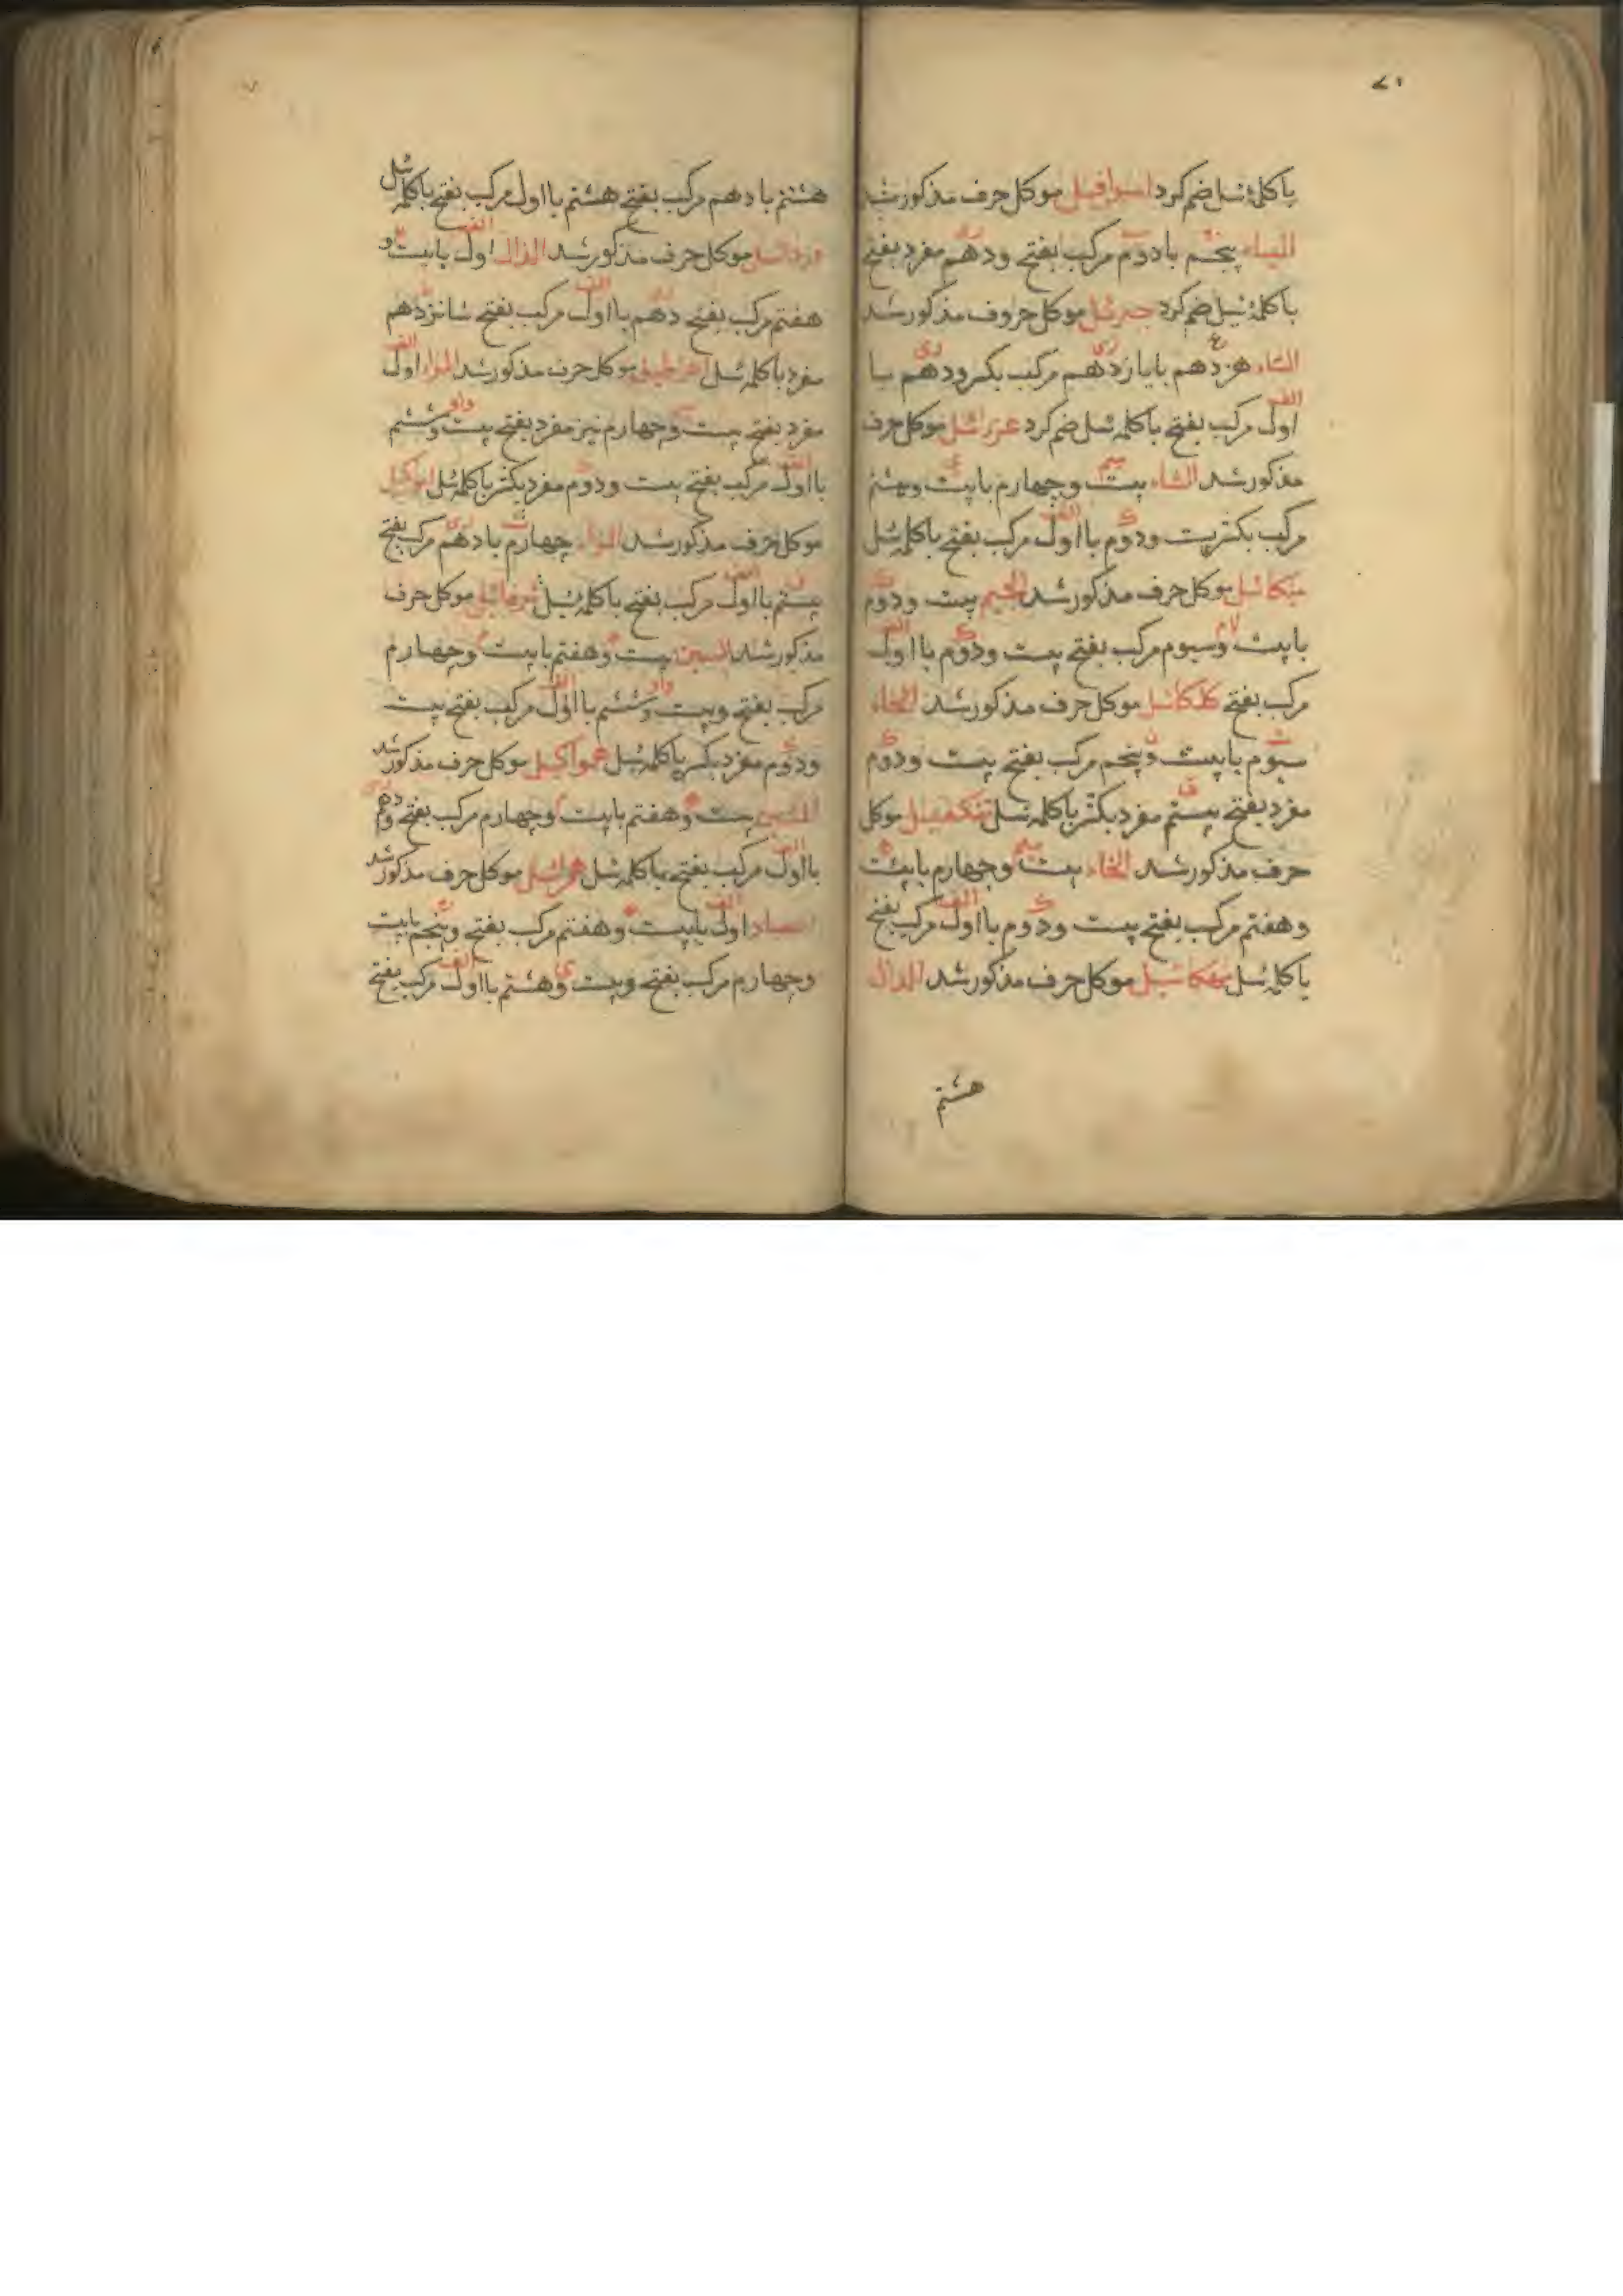 ۷۱
با کلمهٔ ئیل ضم کرد اسرافیل موکل حرف مذکور شد
الباء پنجم با دوم مرکب بفتح ودهم مفرد بفتح
با کلمهٔ ئیل ضم کرد جبرئیل موکل حروف مذکور شد
التاء هژدهم با یازدهم مرکب بکسر ودهم با
اول مرکب بفتح با کلمه ئیل ضم کرد عزرائیل موکل حرف
مذکور شد الثاء بیست وچهارم با بیست وهشتم
مرکب بکسر بیست ودوم با اول مرکب بفتح با کلمه ئیل
میکائیل موکل حرف مذکور شد الجیم بیست ودوم
با بیست وسیوم مرکب بفتح بیست ودوم با اول
مرکب بفتح کلکائیل موکل حرف مذکور شد الحاء
سیوم با بیست وپنجم مرکب بفتح بیست ودوم
مفرد بفتح بیستم مفرد بکسر با کلمه ئیل تنکفیل موکل
حرف مذکور شد الخاء بیست وچهارم با بیست
وهفتم مرکب بفتح بیست ودوم با اول مرکب بفتح
با کلمه ئیل مهکائیل موکل حرف مذکور شد الدال
هشتم
هشتم با دهم مرکب بفتح هشتم با اول مرکب بفتح با کلمه ئیل
دردائیل موکل حرف مذکور شد الذال اول با بیست و
هفتم مرکب بفتح دهم با اول مرکب بفتح شانزدهم
مفرد با کلمه ئیل موکل حرف مذکور شد الراء اول
مفرد بفتح بیست وچهارم نیز مفرد بفتح بیست وششم
با اول مرکب بفتح بیست ودوم مفرد بکسر با کلمه ئیل امواکیل
موکل حرف مذکور شد الزاء چهارم با دهم مرکب بفتح
بیستم با اول مرکب بفتح با کلمه ئیل موکل حرف
مذکور شد السین بیست وهفتم با بیست وچهارم
مرکب بفتح وبیست وششم با اول مرکب بفتح بیست
ودوم مفرد بکسر با کلمه ئیل همواکیل موکل حرف مذکور شد
الشین بیست وهفتم با بیست وچهارم مرکب بفتح ودهم
با اول مرکب بفتح با کلمه ئیل همرائیل موکل حرف مذکور شد
الصاد اول با بیست وهفتم مرکب بفتح وپنجم با بیست
وچهارم مرکب بفتح وبیست وهشتم با اول مرکب بفتح